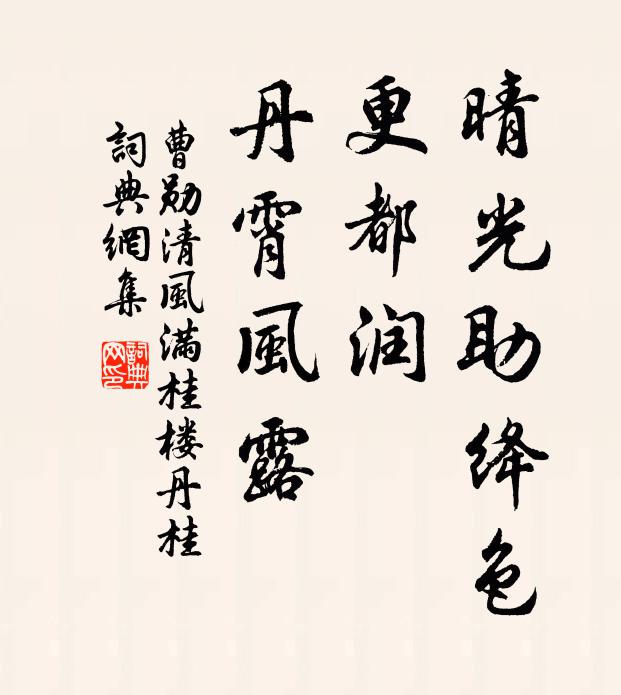 晴光助绛色
更都润
丹霄風露
曹勛清風滿桂楼丹桂
詞典網集
詞典网印